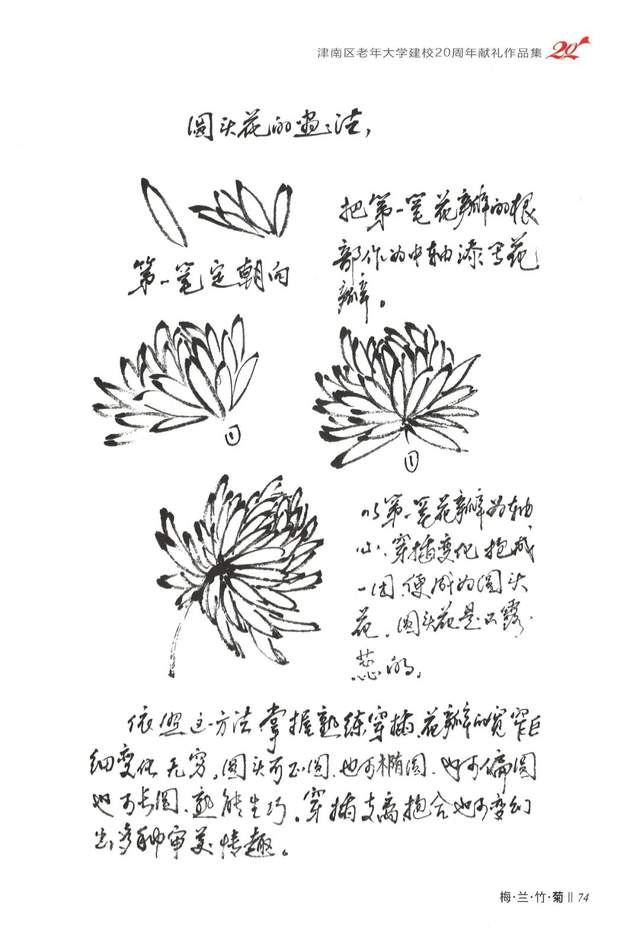 津南区老年大学建校20周年献礼作品集 20
圆头花的画法,
把第一笔花瓣的根
部作为中轴添写花
瓣。
第一笔定朝向
①
①
以第一笔花瓣为轴
心、穿插变化抱成
一团,便成为圆头
花,圆头花是不露
蕊的,
依照这一方法掌握熟练穿插,花瓣的宽窄巨
细变化无穷。圆头可正圆、也可椭圆、也可偏圆
也可长圆,熟能生巧,穿插支离抱合也可变幻
出多种审美情趣。
梅·兰·竹·菊 || 74